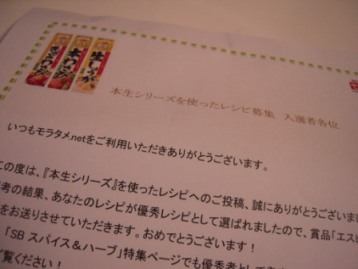 生しょうが
本わさび
本生シリーズを使ったレシピ募集 入選者各位
いつもモラタメ.netをご利用いただきありがとうございます。
の度は、『本生シリーズ』を使ったレシピへのご投稿、誠にありがとうございま
考の結果、あなたのレシピが優秀レシピとして選ばれましたので、賞品「エスビ
をお送りさせていただきます。おめでとうございます!
「SB スパイス&ハーブ」特集ページでも優秀者として
ご覧ください!